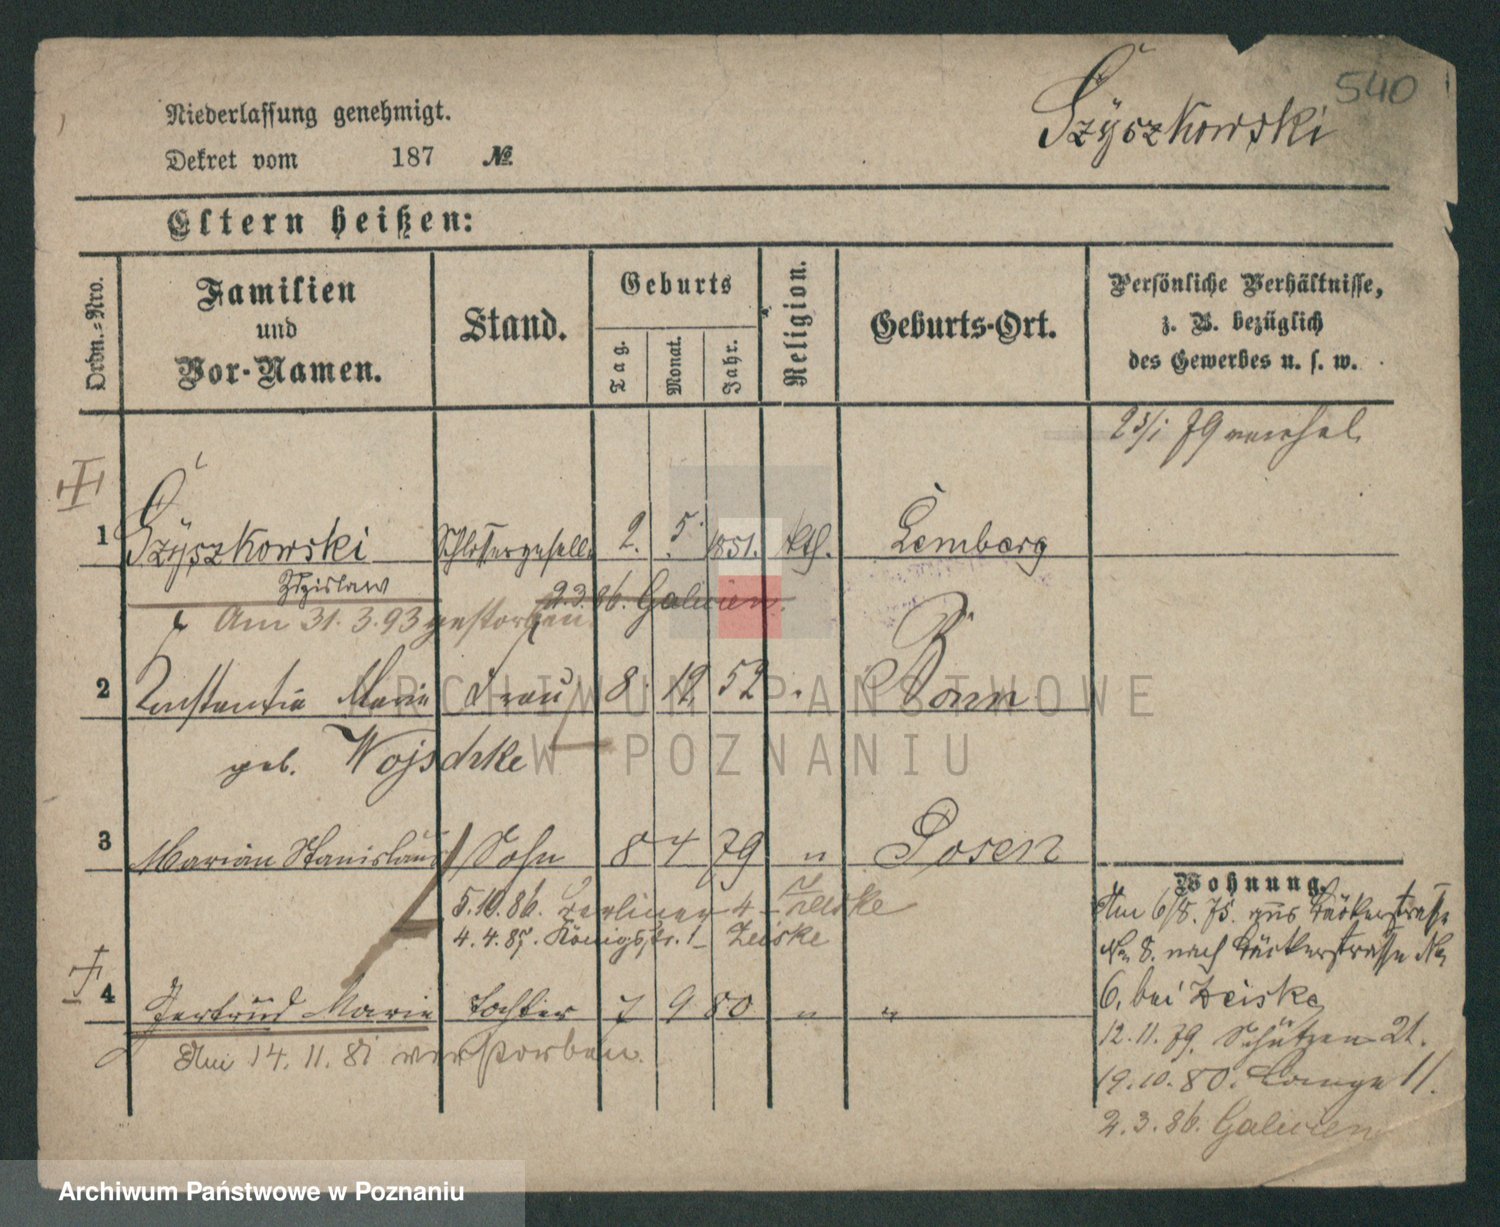 540
Czyszkowski
Niederlassung genehmigt.
Dekret vom 187 №
Eltern heißen:
Ordn.-Nro.
Familien
und
Vor-Namen.
Stand.
Geburts
Tag.
Monat.
Jahr.
Religion.
Geburts-Ort.
Persönliche Verhältnisse,
z. B. bezüglich
des Gewerbes u. s. w.
23/1 79
1 Czyszkowski Schlossergeselle 2. 5. 1851. kth. Lemberg
Zdzislaw
2.3.86. Galicien.
Am 31. 3. 93 gestorben.
2 Constantia Marie Frau 8. 12. 52 Bonn
geb. Wojschke
3 Marian Stanislaus Sohn 8 4 79 " Posen
5.10.86. Berliner 4 - Zeiske
4.4.87. Königstr. 1 - Zeiske
4 Gertrud Marie Tochter 7 9 80 " "
Am 14. 11. 81 verstorben.
Wohnung.
Am 6/8. 75. aus Bäckerstrasse
No 8. nach Bäckerstrasse No
6. bei Zeiske
12. 11. 79. Schützen 21.
19. 10. 80. Lange 11.
2. 3. 86. Galicien
ARCHIWUM PAŃSTWOWE
W POZNANIU
Archiwum Państwowe w Poznaniu